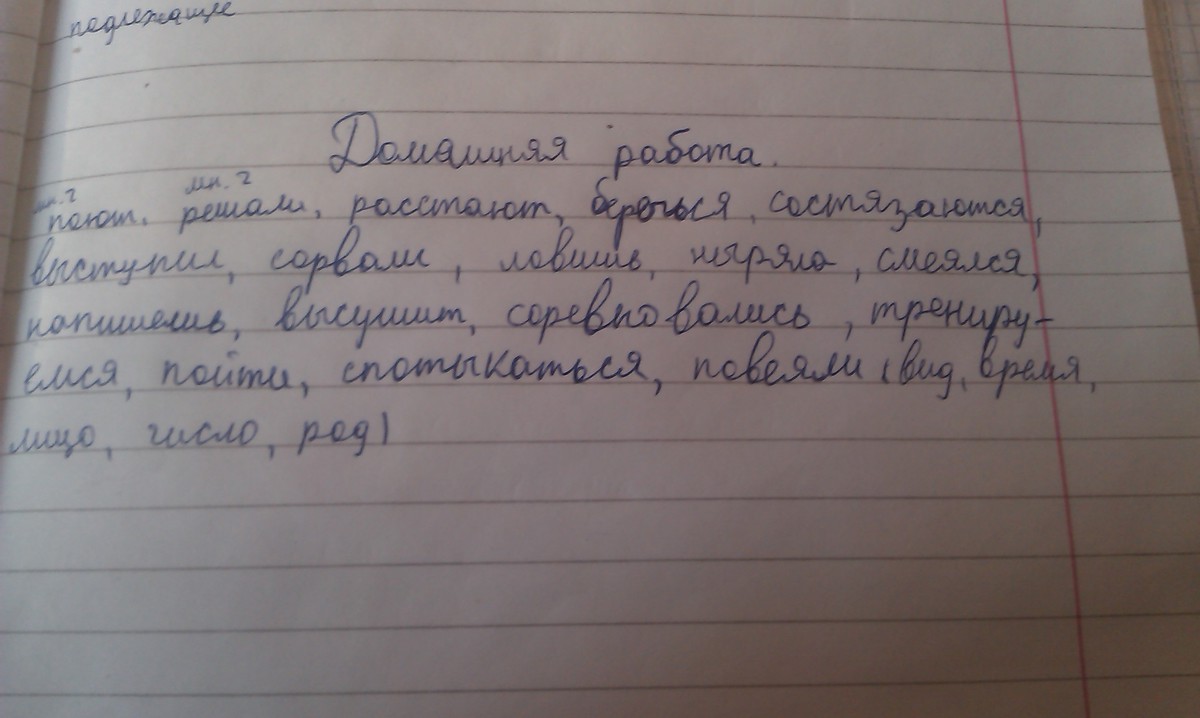 подлежащие
Домашняя работа.
мн. ч мн. ч
поют, решали, расстают, беречься, состязаются,
выступил, сорвали, ловишь, ныряла, смеялся,
напишешь, высушит, соревновались, трениру-
емся, пойти, спотыкаться, повеяли (вид, время,
лицо, число, род)